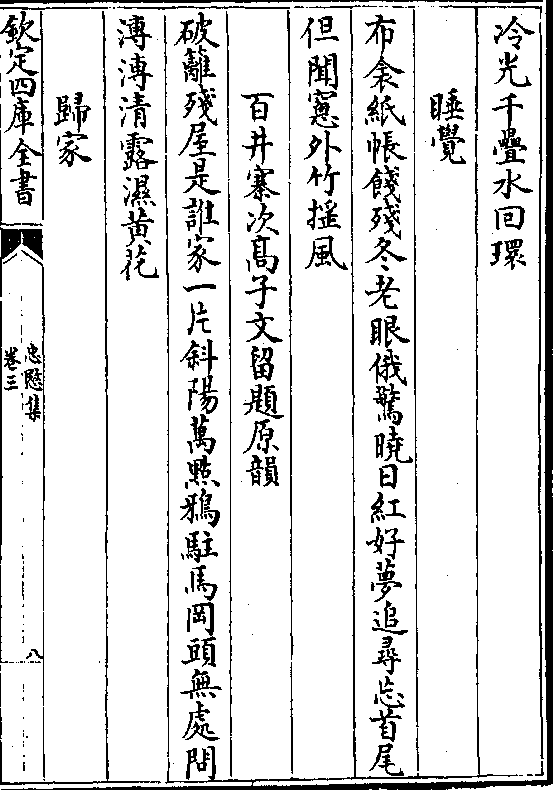 冷光千疊水回環
睡覺
布衾紙帳餞殘冬老眼俄驚曉日紅好夢追尋忘首尾
但聞窻外竹揺風
百井寨次髙子文留題原韻
破籬殘屋是誰家一片斜陽萬㸃鴉駐馬岡頭無處問
漙漙清露濕黄花
歸家
欽定四庫全書
忠愍集
卷三
八